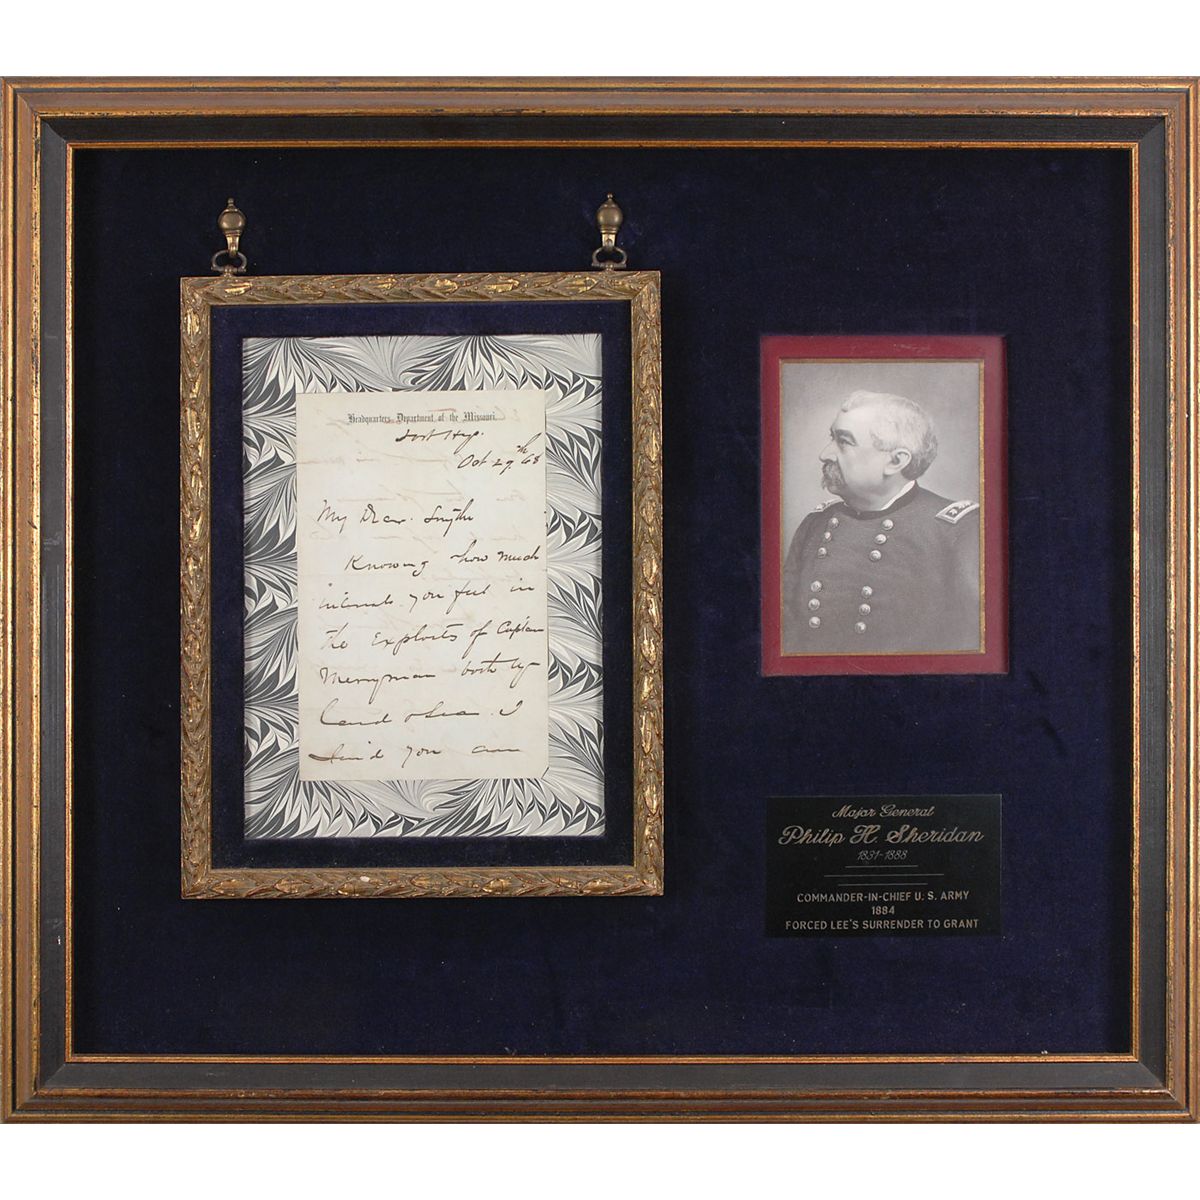 Headquarters Department of the Missouri.
Fort Hays.
Oct 27th 68
My Dear Smythe
Knowing how much
interest you feel in
the exploits of Captain
Merryman both by
land & sea. I
send you an
Major General
Philip H. Sheridan
1831-1888
COMMANDER-IN-CHIEF U. S. ARMY
1884
FORCED LEE'S SURRENDER TO GRANT